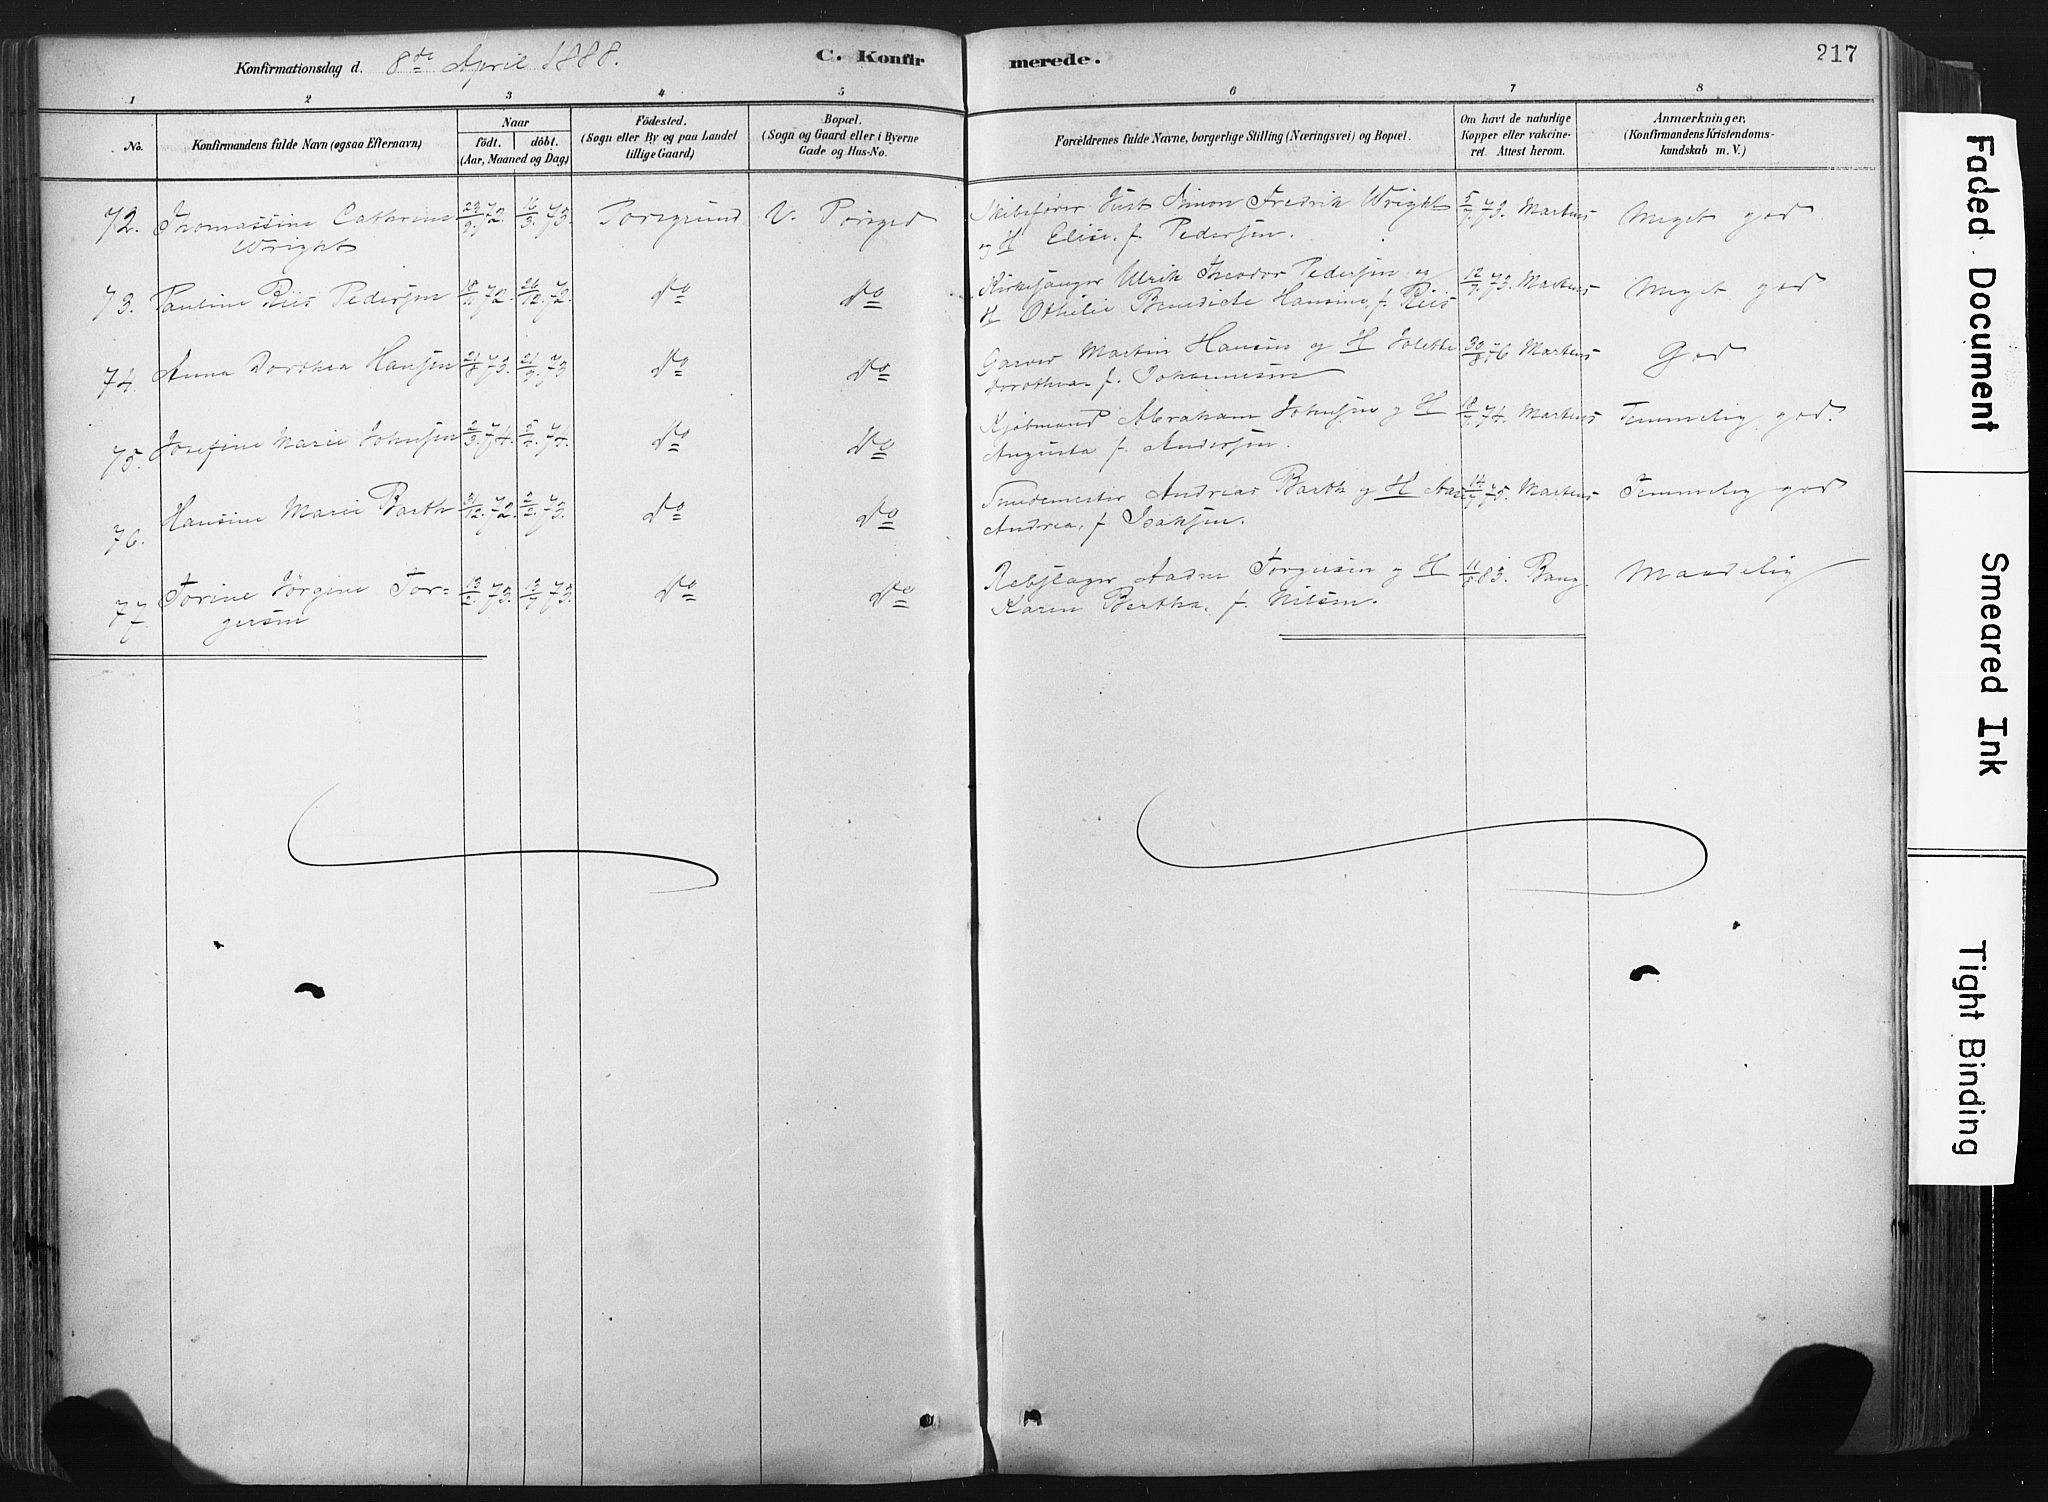 Konfirmationsdag d. 8de April 1888. C. Konfirmerede. 217
1 2 3 4 5 6 7 8
No. Konfirmandens fulde Navn (ogsaa Efternavn) Naar født. døbt. (Aar, Maaned og Dag) Födested. (Sogn eller By og paa Landet tillige Gaard) Bopæl. (Sogn og Gaard eller i Byerne Gade og Hus-No. Forældrenes fulde Navne, borgerlige Stilling (Næringsvei) og Bopæl. Om havt de naturlige Kopper eller vakcineret. Attest herom. Anmærkninger, (Konfirmandens Kristendomskundskab m. V.)
72. Thomassine Cathrine 23/9 72. 16/3 73. Porsgrund V. Porsgd Skibsfører Just Simon Fredrik Wright 5/7 73. Martens Meget god
Wright og H Elise, f. Pedersen.
73. Pauline Riis Pedersen 18/11 72. 26/12 72. do do Kirkesanger Ulrik Theodor Pedersen og 12/7 73. Martens Meget god
H Othilie Benedicte Hansine, f. Riis
74. Anna Dorthea Hansen 21/8 73. 21/9 73 do do Garver Martin Hansen og H Jolette 30/8 76 Martens God
Dorothea, f. Johannesen
75. Josefine Marie Johnsen 2/3 74. 5/7 74. do do Kjøbmand Abraham Johnsen og H 18/7 74. Martens Temmelig god.
Augusta f. Andersen.
76. Hansine Marie Barth 31/12 72. 2/2 73. do do Smedemester Andreas Barth og H 14/7 75. Martens Temmelig god
Andrea, f Isaksen.
77. Torine Jörgine Tor- 13/2 73. 13/7 73. do do Rebslager Aadne Torgersen og H 11/8 83. Bang. Maadelig
gersen Karen Bertha, f. Nilsen.
Faded Document
Smeared Ink
Tight Binding